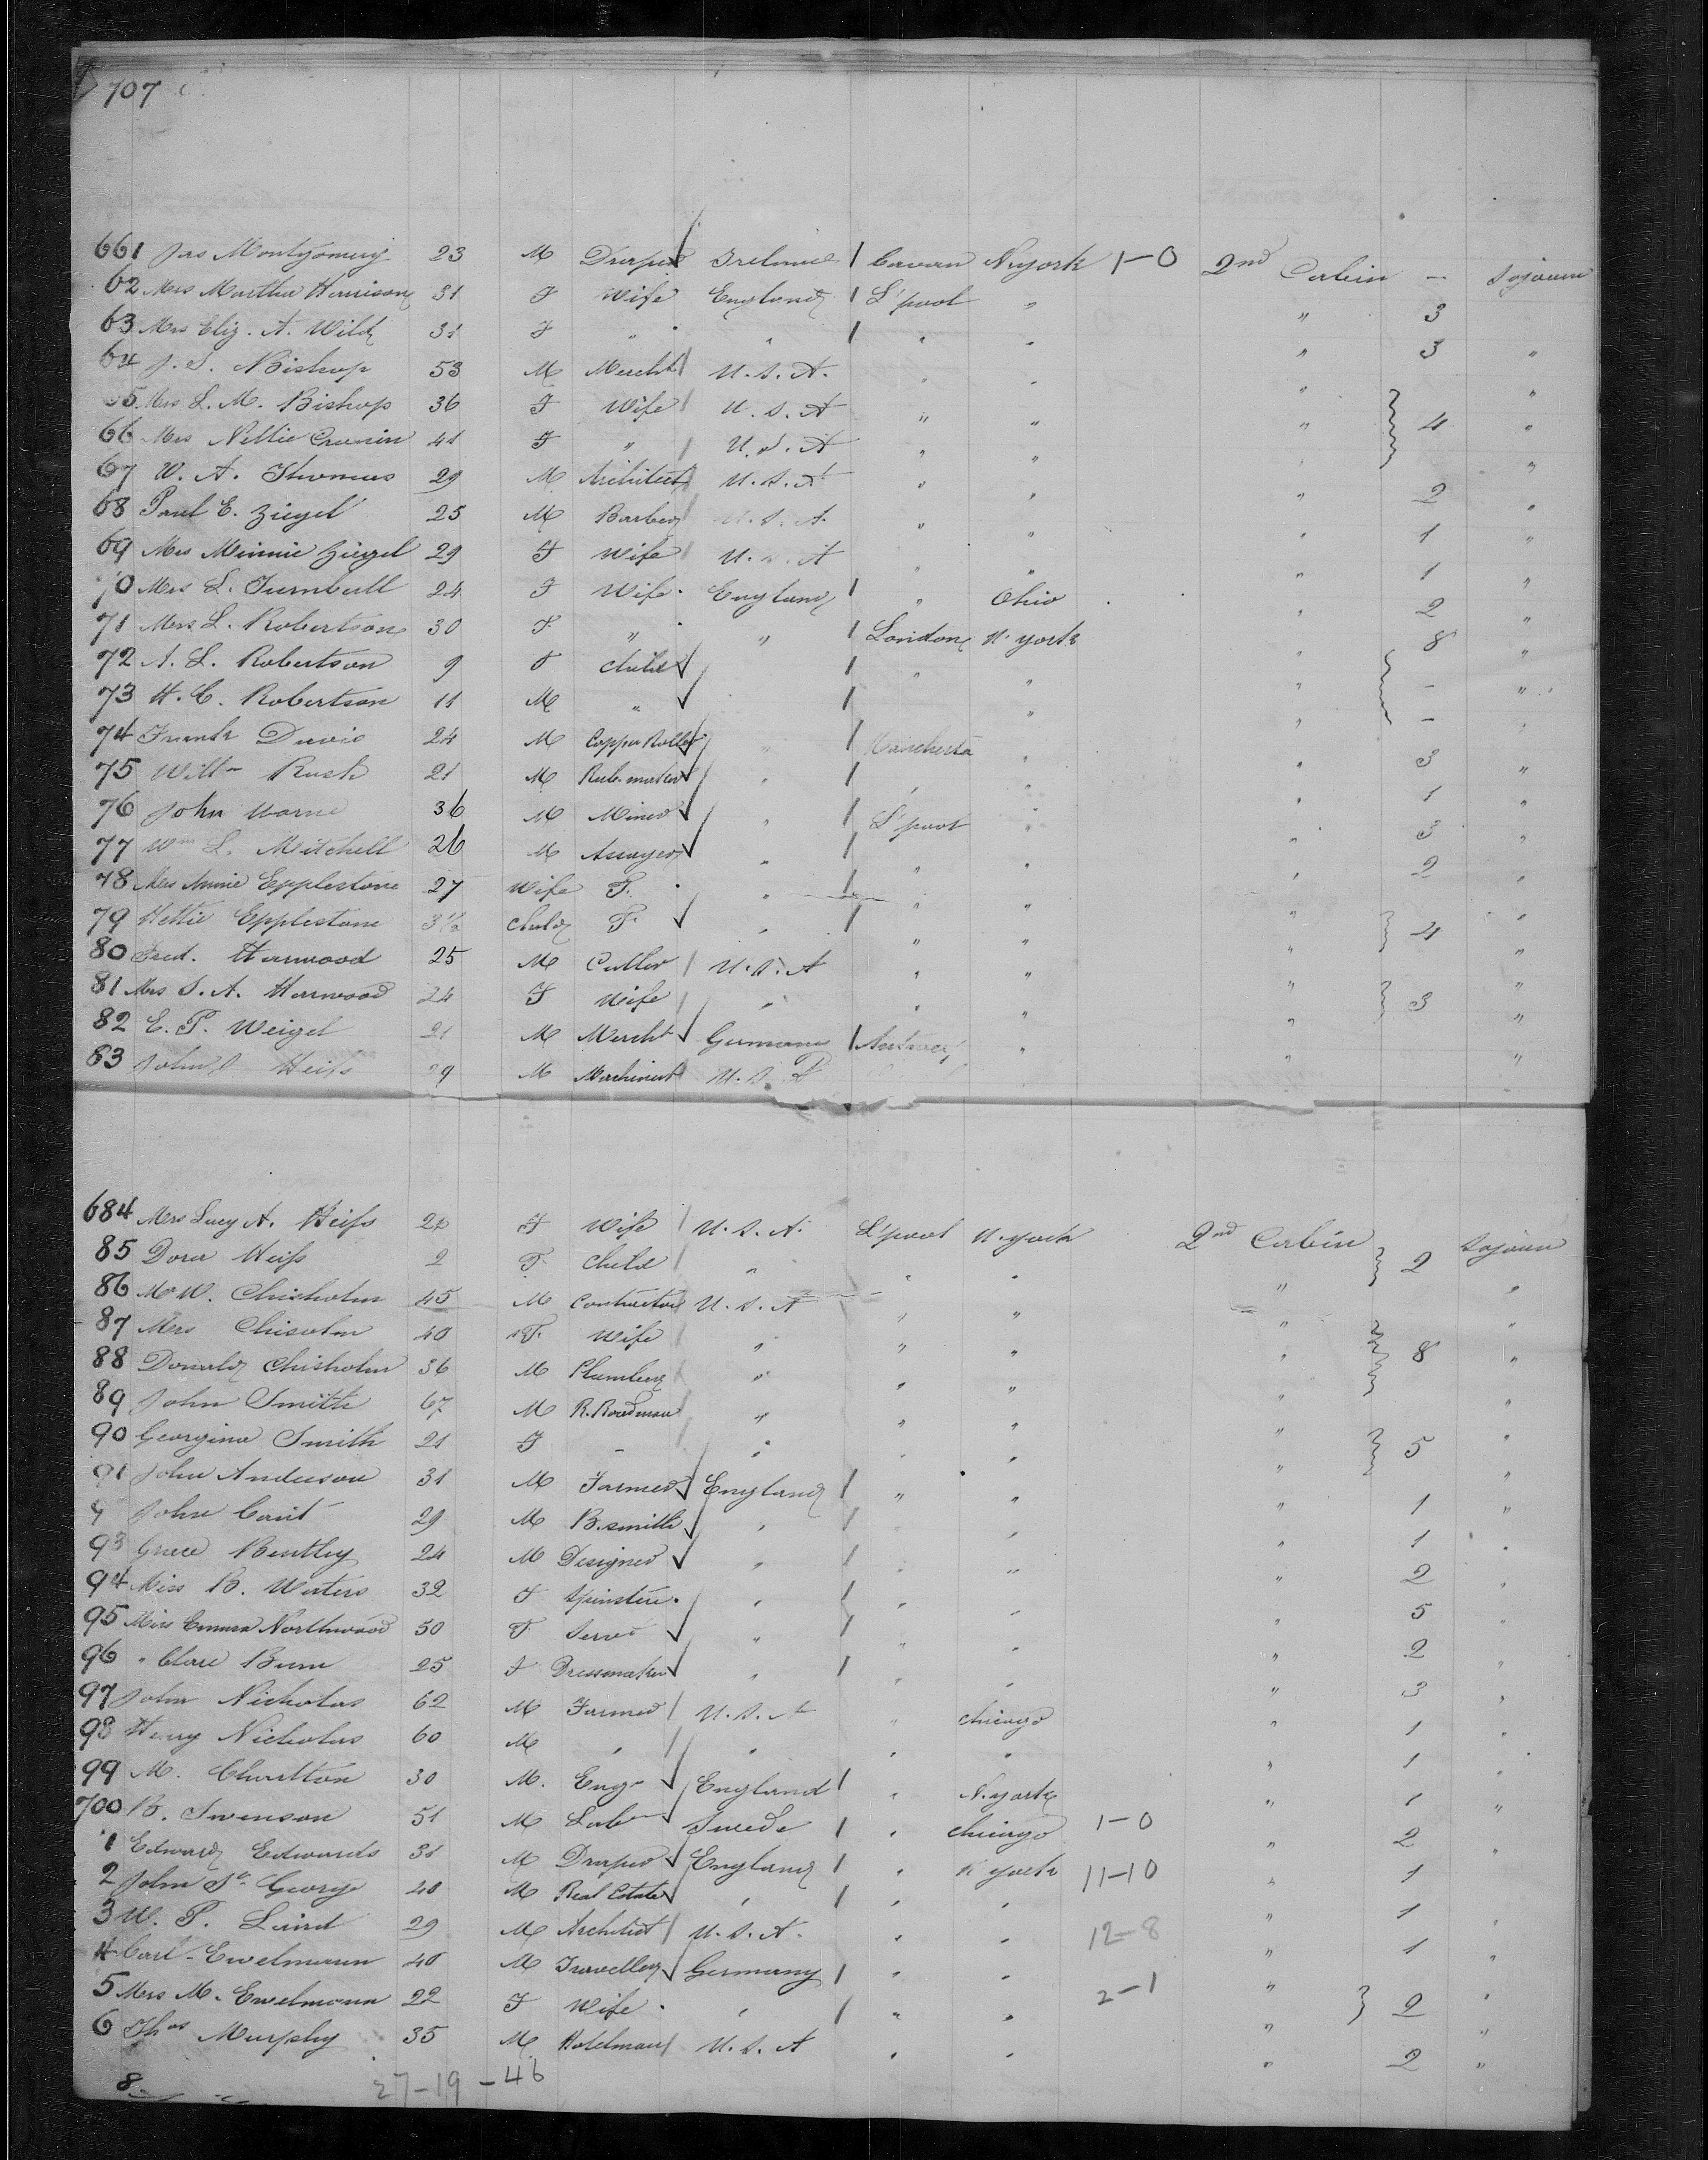 707
661 Jas Montgomery 23 M Draper Ireland Cavan N york 1-0 2nd Cabin - Sojourn
62 Mrs Martha Harrison 31 F Wife England L'pool " " 3
63 Mrs Eliz. A. Wild 31 F " " " " " 3 "
64 J. S. Bishop 53 M Mercht U.S.A. " " " "
65 Mrs L. M. Bishop 36 F Wife U.S.A " " " 4 "
66 Mrs Nellie Cronin 41 F " U.S.A " " "
67 W. A. Thomas 29 M Architect U.S.A " " " 2 "
68 Paul E. Ziegel 25 M Barber U.S.A. " " " 1 "
69 Mrs Minnie Ziegel 29 F Wife U.S.A " " " 1 "
70 Mrs L. Turnbull 24 F Wife England " Ohio " 2 "
71 Mrs L. Robertson 30 F " " London N. york " 8 "
72 A. L. Robertson 9 F Child " " " - "
73 H. C. Robertson 11 M " " " - "
74 Frank Davis 24 M Copper Roller " Manchester " " 3 "
75 Willm Rush 21 M Rule maker " " " " 1 "
76 John Warne 36 M Miner " L'pool " " 3 "
77 Wm L. Mitchell 26 M Assayer " " " " 2 "
78 Mrs Annie Epplestone 27 Wife F. " " " " "
79 Hettie Epplestone 3 1/2 Child F. " " " " 4 "
80 Fred. Harwood 25 M Cutler U.S.A " " " "
81 Mrs S. A. Harwood 24 F Wife " " " " 3 "
82 E. P. Weigel 21 M Mercht Germany " " "
83 John Heiss 29 M Machinist U.S.A
684 Mrs Lucy A. Heiss F Wife U.S.A. L'pool N. york 2nd Cabin 2 Sojourn
85 Dora Heiss 2 F. Child " " " " "
86 Mr W. Chisholm 45 M Contractor U.S.A " " " "
87 Mrs Chisolm 40 F. Wife " " " " 8 "
88 Donald Chisholm 36 M Plumber " " " "
89 John Smith 67 M R. Roadman " " " " "
90 Georgina Smith 21 F - " " " " 5 "
91 John Anderson 31 M Farmer England " " " 1 "
9 John Cant 29 M B. smith " " " 1 "
93 Grace Bentley 24 M Designer " " " " 2 "
94 Miss B. Waters 32 F Spinster " " " " 5 "
95 Miss Emma Northwood 50 F Servt " " " " 2 "
96 " Clare Bum 25 F Dressmaker " " " " 3 "
97 John Nicholas 62 M Farmer U.S.A " Chicago " 1 "
98 Henry Nicholas 60 M " " " " " 1 "
99 M. Charlton 30 M. Engr England " N. york " 1 "
700 B. Swenson 51 M Labr Swede " Chicago 1-0 " 2 "
1 Edward Edwards 31 M Draper England " N york 11-10 " 1
2 John St. George 40 M Real Estate " " " " 1 "
3 W. P. Laird 29 M Architect U.S.A. " " 12-8 " 1 "
4 Carl Ewelmann 40 M Traveller Germany " " " "
5 Mrs M. Ewelmann 22 F Wife " " " 2-1 " 2 "
6 Thos Murphy 35 M Hotelman U.S.A " " " 2 "
8
27-19-46